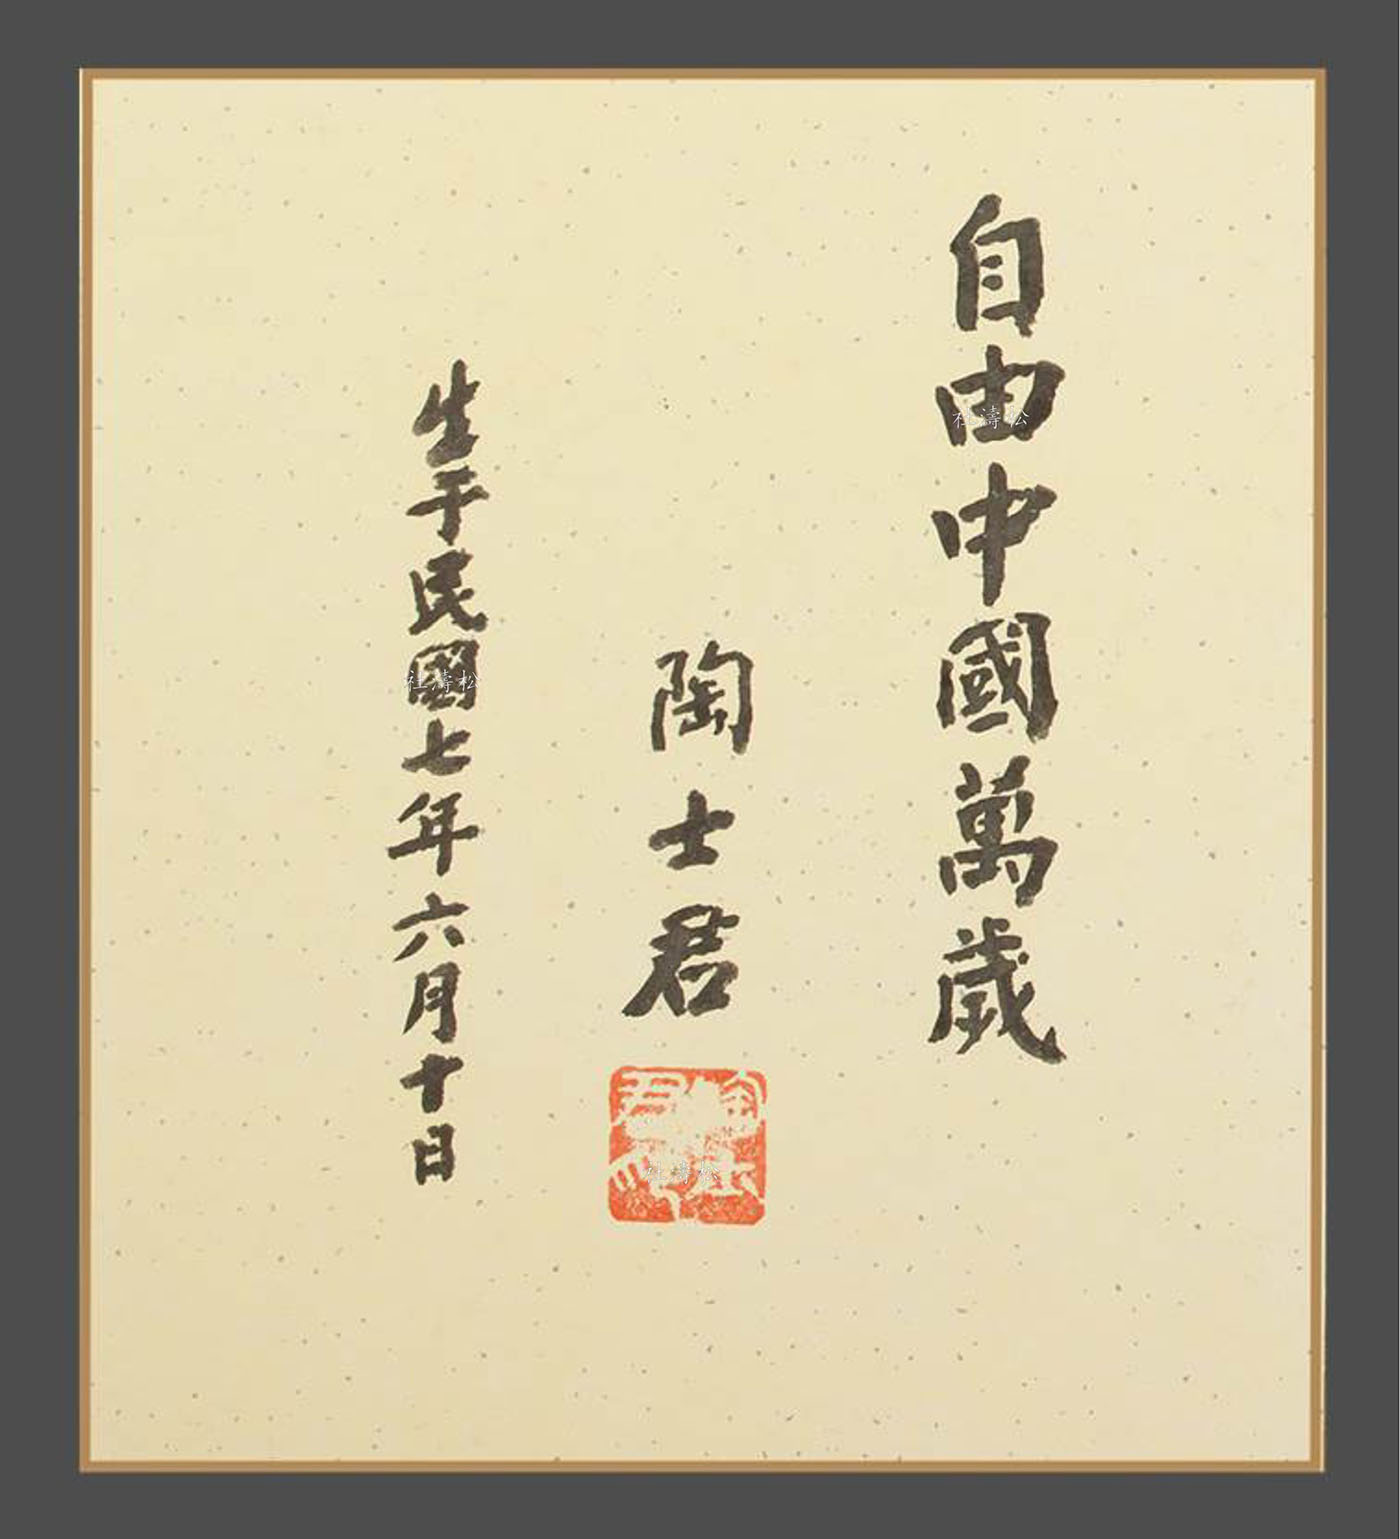 自由中國萬歲
陶士君
生于民國七年六月十日
松濤社
松濤社
松濤社